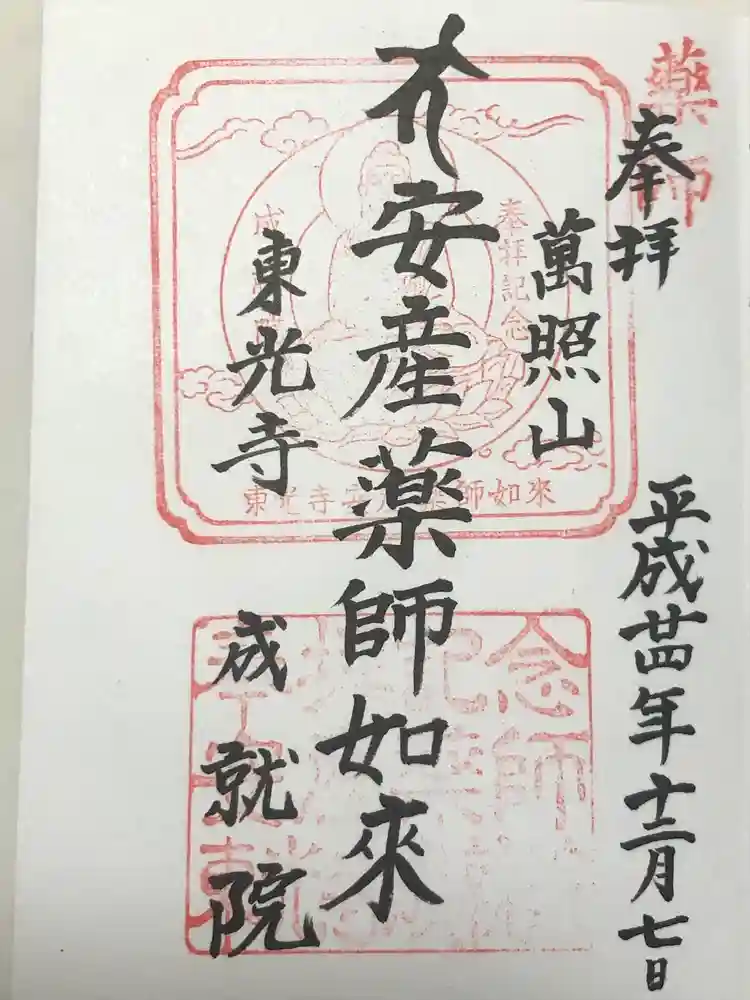 薬師
奉拝
平成廿四年十二月七日
萬照山
安産薬師如來
東光寺
成就院
奉拝記念
東光寺安産薬師如來